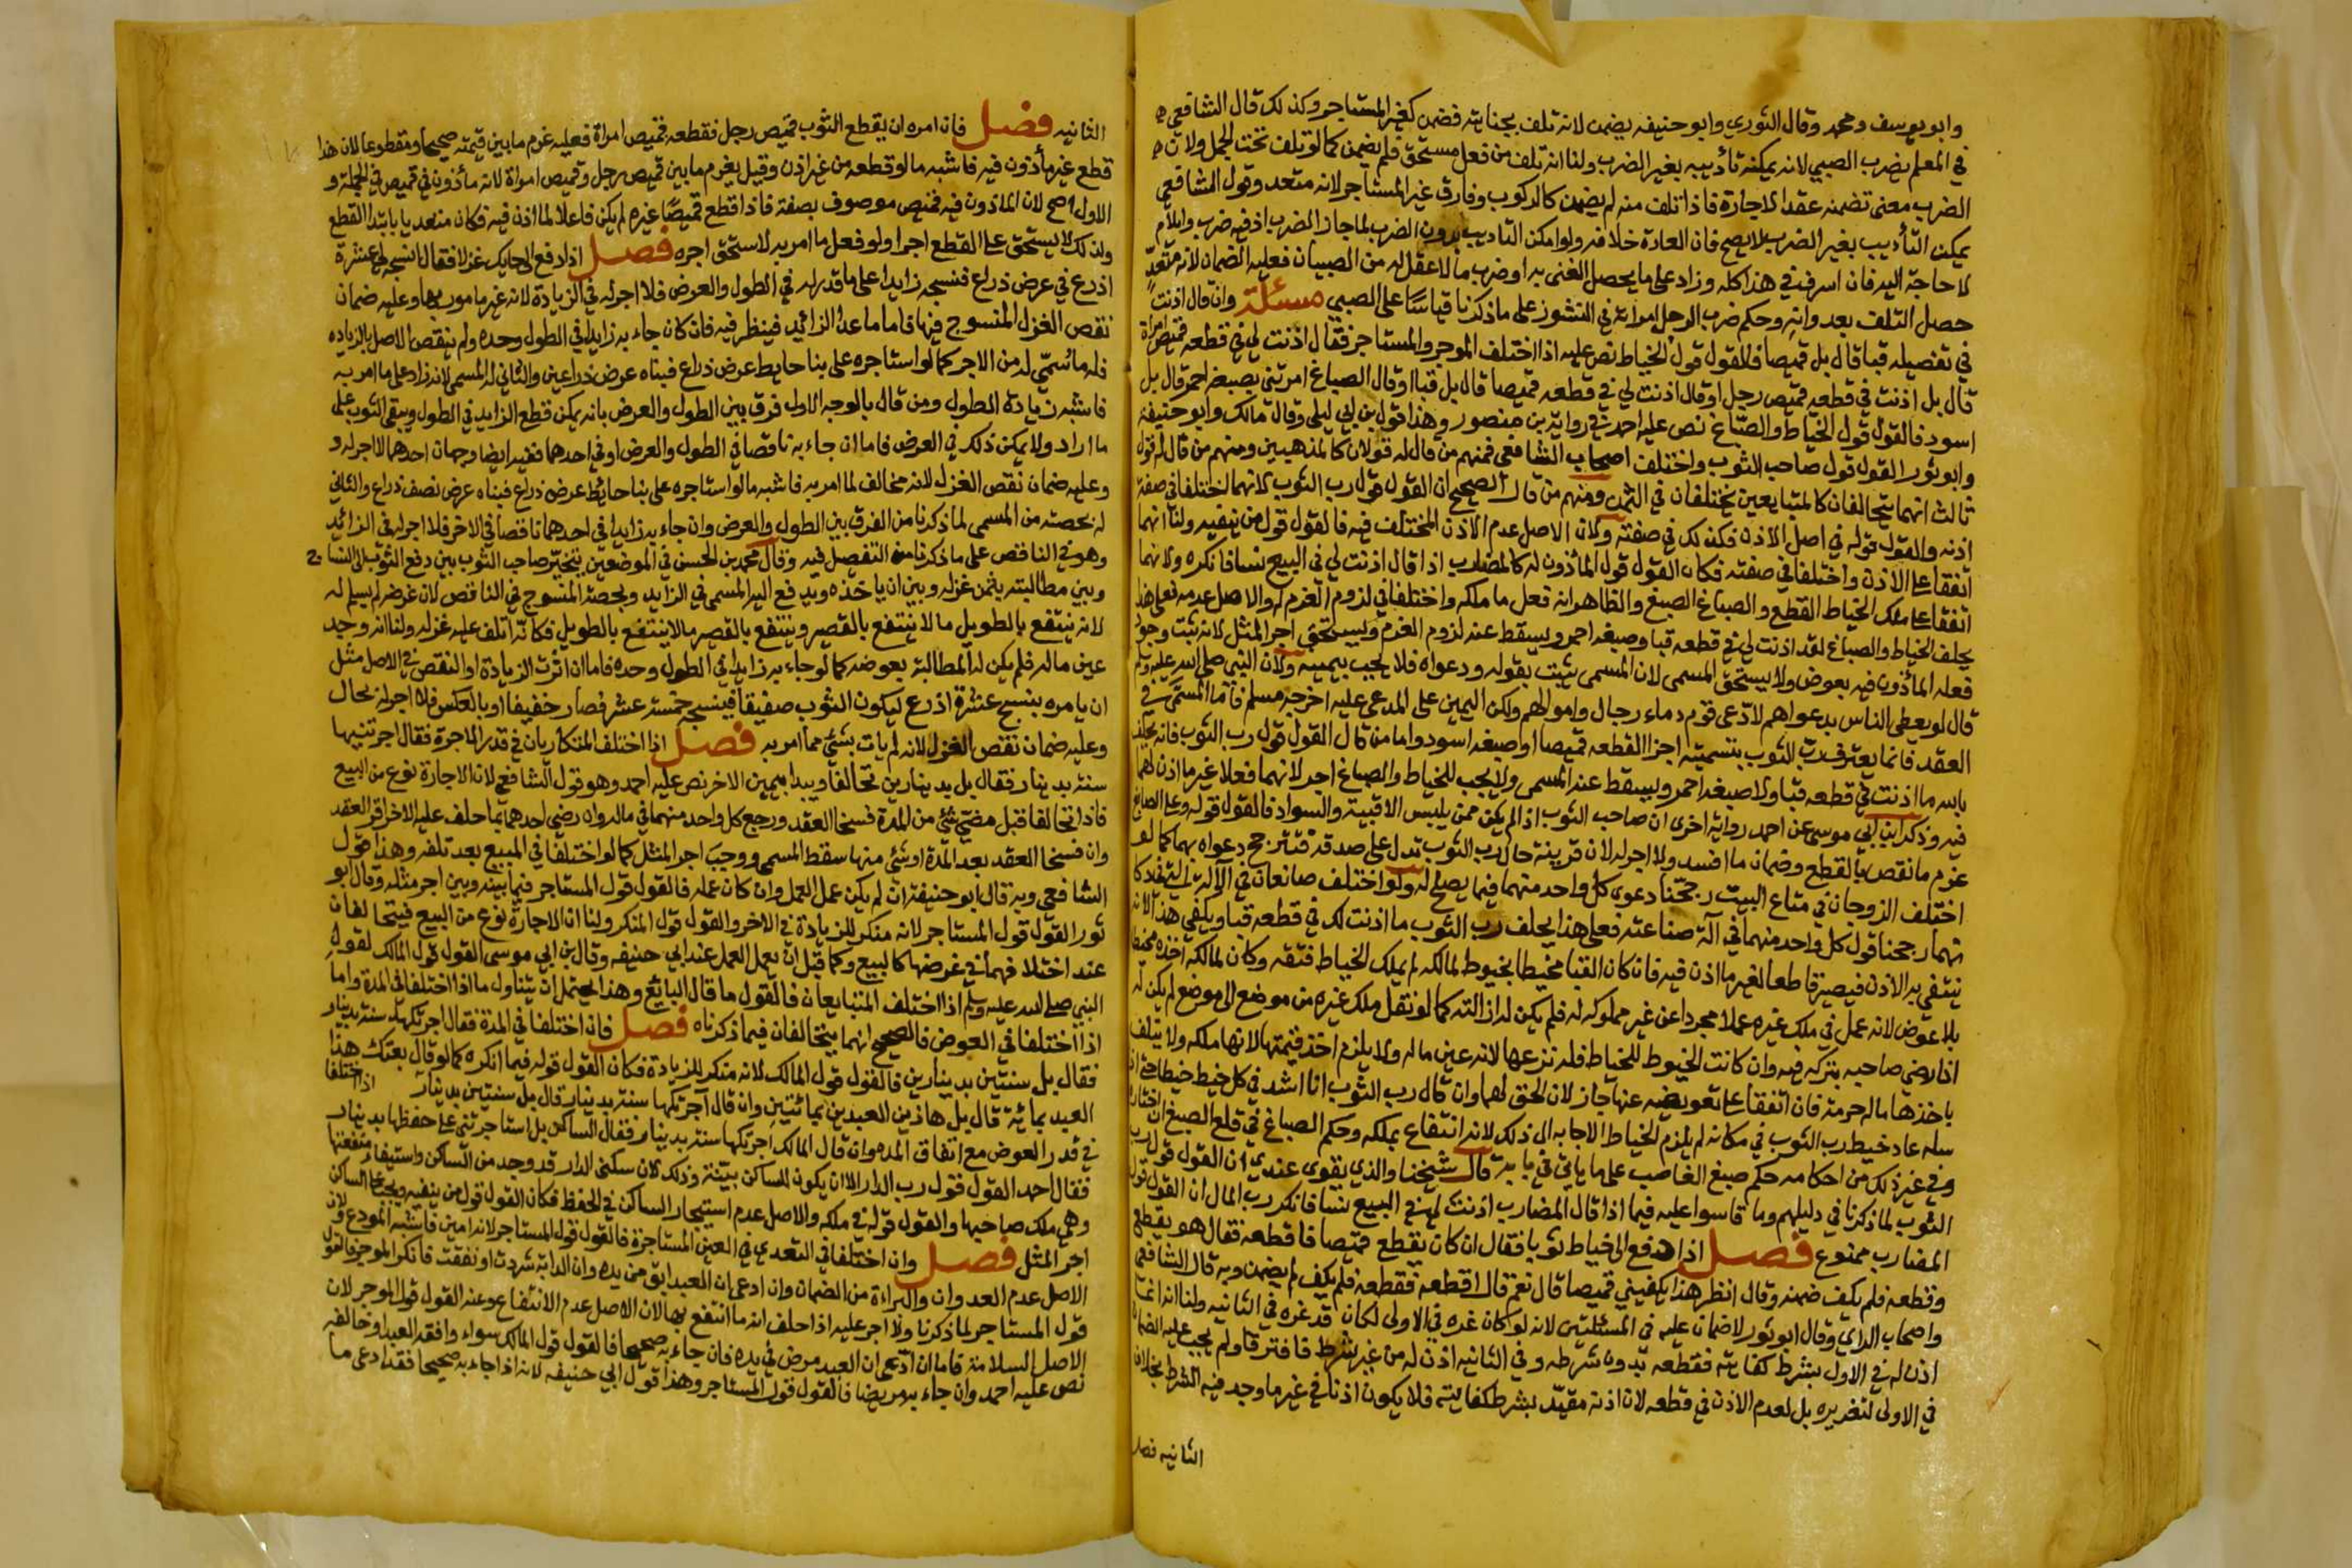 وابو يوسف ومحمد وقال الثوري وابو حنيفه يضمن لانه تلف بجنايته فضمن كغير المستاجر وكذلك قال الشافعي
في المعلم يضرب الصبي لانه يمكنه تأديبه بغير الضرب ولنا انه تلف من فعل مستحق فلم يضمن كما لو تلف تحت الحمل ولان
الضرب معنى تضمنه عقد الاجارة فاذا تلف منه لم يضمن كالركوب وفارق غير المستاجر لانه متعد وقول الشافعي
يمكن التأديب بغير الضرب لا يصح فان العادة خلافه ولو امكن التاديب بدون الضرب لما جاز الضرب اذ فيه ضرب وايلام
لا حاجة اليه فان اسرف في هذا كله وزاد على ما يحصل الغنى به او ضرب من لا عقل له من الصبيان فعليه الضمان لانه متعدٍ
حصل التلف بعدوانه وحكم ضرب الرجل امراته في النشوز على ما ذكرنا قياسًا على الصبي مسئلة وان قال اذنت
في تفصيله قبا قال بل قميصا فالقول قول الخياط نص عليه اذا اختلف الموجر والمستاجر فقال اذنت لي في قطعه قميص امراة
قال بل اذنت في قطعه قميص رجل او قال اذنت لي في قطعه قميصا قال بل قبا او قال الصباغ امرتني بصبغه احمر قال بل
اسود فالقول قول الخياط والصباغ نص عليه احمد في رواية بن منصور وهذا قول بن ابي ليلى وقال مالك وابو حنيفة
وابو ثور القول قول صاحب الثوب واختلف اصحاب الشافعي فمنهم من قال له قولان كالمذهبين ومنهم من قال له قول
ثالث انهما يتحالفان كالمتبايعين يختلفان في الثمن ومنهم من قال الصحيح ان القول قول رب الثوب لانهما اختلفا في صفة
اذنه والقول قوله في اصل الاذن فكذلك في صفته ولان الاصل عدم الاذن المختلف فيه فالقول قول من ينفيه ولنا انهما
اتفقا على الاذن واختلفا في صفته فكان القول قول الماذون له كالمضارب اذا قال اذنت لي في البيع نسا فانكره ولانهما
اتفقا على ملك الخياط القطع والصباغ الصبغ والظاهر انه فعل ما ملكه واختلفا في لزوم الغرم له والاصل عدمه فعلى هذا
يحلف الخياط والصباغ لقد اذنت لي في قطعه قبا وصبغه احمر ويسقط عنه لزوم الغرم ويستحق اجر المثل لانه ثبت وجود
فعله الماذون فيه بعوض ولا يستحق المسمى لان المسمى يثبت بقوله ودعواه فلا يجب بيمينه ولان النبي صلى الله عليه وسلم
قال لو يعطى الناس بدعواهم لادعى قوم دماء رجال واموالهم ولكن اليمين على المدعى عليه اخرجه مسلم فاما المسمى في
العقد فانما يعترف رب الثوب بتسميته اجرا لقطعه قميصا او صبغه اسود واما من قال القول قول رب الثوب فانه يحلف
بالله ما اذنت في قطعه قبا ولا صبغه احمر ويسقط عنه المسمى ولا يجب للخياط والصباغ اجر لانهما فعلا غير ما اذن لهما
فيه وذكر ابن ابي موسى عن احمد رواية اخرى ان صاحب الثوب اذا لم يكن ممن يلبس الاقبية والسواد فالقول قوله وعلى الصانع
غرم ما نقص بالقطع وضمان ما افسد ولا اجر له لان قرينة حال رب الثوب تدل على صدقه فتترجح دعواه بها كما لو
اختلف الزوجان في متاع البيت رجحنا دعوى كل واحد منهما فيما يصلح له ولو اختلف صانعان في الالة
رجحنا قول كل واحد منهما في آلة صناعته فعلى هذا يحلف رب الثوب ما اذنت لك في قطعه قبا ويكفي هذا لانه
ينتفي به الاذن فيصير قاطعا لغير ما اذن فيه فان كان القبا مخيطا بخيوط لمالكه لم يملك الخياط فتقه وكان لمالكه اخذه مخيطا
بلا عوض لانه عمل في ملك غيره عملا مجردا عن غير مملوكه له فلم يكن له ازالته كما لو نقل ملك غيره من موضع الى موضع لم يكن له
اذا رضي صاحبه بتركه فيه وان كانت الخيوط للخياط فله نزعها لانه عين ماله ولا يلزم اخذ قيمتها لانها ملكه ولا يتلف
باخذها ما له حرمة فان اتفقا على تعويضه عنها جاز لان الحق لهما وان قال رب الثوب انا اشد في كل خيط خيطا حتى اذا
سله عاد خيط رب الثوب في مكانه لم يلزم الخياط الاجابه الى ذلك لانه انتفاع بملكه وحكم الصباغ في قلع الصبغ ان اختار
وفي غير ذلك من احكامه حكم صبغ الغاصب على ما ياتي في بابه قال شيخنا والذي يقوى عندي ان القول قول رب
الثوب لما ذكرنا في دليلهم وما قاسوا عليه فيما اذا قال المضارب اذنت لي في البيع نسا فانكر رب المال ان القول قول
المضارب ممنوع فصل اذا دفع الى خياط ثوبا فقال ان كان يقطع قميصا فاقطعه فقال هو يقطع
وقطعه فلم يكف ضمنه وقال انظر هذا يكفيني قميصا قال نعم قال اقطعه فقطعه فلم يكف لم يضمن وبه قال الشافعي
واصحاب الراي وقال ابو ثور لا ضمان عليه في المسئلتين لانه لو كان غره في الاولى لكان قد غره في الثانيه ولنا انه انما
اذن له في الاول بشرط كفايته فقطعه بدون شرطه وفي الثانيه اذن له من غير شرط فافترقا ولم يجب عليه الضمان
في الاولى لتغريره بل لعدم الاذن في قطعه لان اذنه مقيد بشرط كفايته فلا يكون اذنا في غير ما وجد فيه الشرط بخلاف
الثانيه فصل
الثانيه فصل فان امره ان يقطع الثوب قميص رجل فقطعه قميص امراة فعليه غرم ما بين قيمته صحيحا ومقطوعا لان هذا
قطع غير مأذون فيه فاشبه ما لو قطعه من غير اذن وقيل يغرم ما بين قميص رجل وقميص امراة لانه مأذون في قميص في الجملة و
الاول اصح لان الماذون فيه قميص موصوف بصفة فاذا قطع قميصًا غيره لم يكن فاعلا لما اذن فيه فكان متعديا بابتدا القطع
ولذلك لا يستحق على القطع اجرا ولو فعل ما امر به لاستحق اجره فصل اذا دفع الى حايك غزلا فقال انسجه لي عشرة
اذرع في عرض ذراع فنسجه زايدا على ما قدر له في الطول والعرض فلا اجر له في الزيادة لانه غير مامور بها وعليه ضمان
نقص الغزل المنسوج فيها فاما ما عدا الزائد فينظر فيه فان كان جاء به زايدا في الطول وحده ولم ينقص الاصل بالزياده
فله ما سمي له من الاجر كما لو استاجره على بنا حايط عرض ذراع فبناه عرض ذراعين والثاني له المسمى لانه زاد على ما امر به
فاشبه زيادة الطول ومن قال بالوجه الاول فرق بين الطول والعرض بانه يمكن قطع الزايد في الطول ويبقى الثوب على
ما اراد ولا يمكن ذلك في العرض فاما ان جاء به ناقصا في الطول والعرض او في احدهما ففيه ايضا وجهان احدهما لا اجر له و
وعليه ضمان نقص الغزل لانه مخالف لما امر به فاشبه ما لو استاجره على بنا حائط عرض ذراع فبناه عرض نصف ذراع والثاني
له بحصته من المسمى لما ذكرنا من الفرق بين الطول والعرض وان جاء به زايدا في احدهما ناقصا في الاخر فلا اجر له في الزائد
وهو في الناقص على ما ذكرنا من التفصيل فيه وقال محمد بن الحسن في الموضعين يتخير صاحب الثوب بين دفع الثوب الى النساج
وبين مطالبته بثمن غزله وبين ان ياخذه ويدفع اليه المسمى في الزايد وبحصة المنسوج في الناقص لان غرضه لم يسلم له
لانه ينتفع بالطويل ما لا ينتفع بالقصير وينتفع بالقصير ما لا ينتفع بالطويل فكانه اتلف عليه غزله ولنا انه وجد
عين ماله فلم يكن له المطالبة بعوضه كما لو جاء به زايدا في الطول وحده فاما ان اثرت الزيادة او النقص في الاصل مثل
ان يامره بنسج عشرة اذرع ليكون الثوب صفيقا فينسجه خمسة عشر فصار خفيفا او بالعكس فلا اجر له بحال
وعليه ضمان نقص الغزل لانه لم يات بشئ مما امر به فصل اذا اختلف المتكاريان في قدر الاجرة فقال اجرتنيها
سنة بدينار فقال بل بدينارين تحالفا ويبدا بيمين الاخر نص عليه احمد وهو قول الشافعي لان الاجارة نوع من البيع
فاذا تحالفا قبل مضي شئ من المدة فسخا العقد ورجع كل واحد منهما في ماله وان رضي احدهما بما حلف عليه الاخر اقر العقد
وان فسخا العقد بعد المدة او شئ منها سقط المسمى ووجب اجر المثل كما لو اختلفا في المبيع بعد تلفه وهذا قول
الشافعي وبه قال ابو حنيفة ان لم يكن عمل العمل وان كان عمله فالقول قول المستاجر فيما بينه وبين اجر مثله وقال ابو
ثور القول قول المستاجر لانه منكر للزيادة في الاجر والقول قول المنكر ولنا ان الاجارة نوع من البيع فيتحالفان
عند اختلافهما في عوضها كالبيع وكما قبل ان يعمل العمل عند ابي حنيفه وقال بن ابي موسى القول قول المالك لقول
النبي صلى الله عليه وسلم اذا اختلف المتبايعان فالقول ما قال البائع وهذا يحتمل ان يتناول ما اذا اختلفا في المدة واما
اذا اختلفا في العوض فالصحيح انهما يتحالفان فيما ذكرناه فصل فان اختلفا في المدة فقال اجرتكها سنة بدينار
فقال بل سنتين بدينارين فالقول قول المالك لانه منكر للزيادة فكان القول قوله فيما انكره كما لو قال بعتك هذا
العبد بمائة قال بل هاذين العبدين بمائتين وان قال اجرتكها سنة بدينار قال بل سنتين بدينار اذا اختلفا
في قدر العوض مع اتفاق المده وان قال المالك اجرتكها سنة بدينار فقال الساكن بل استاجرتني على حفظها بدينار
فقال احمد القول قول رب الدار الا ان يكون للساكن بينة وذلك لان سكنى الدار قد وجد من الساكن واستيفاء منفعتها
وهي ملك صاحبها والقول قوله في ملكه والاصل عدم استيجار الساكن في الحفظ فكان القول قول من ينفيه ويجب على الساكن
اجر المثل فصل وان اختلفا في التعدي في العين المستاجرة فالقول قول المستاجر لانه امين فاشبه المودع ولان
الاصل عدم العدوان والبراءة من الضمان وان ادعى ان العبد ابق من يده وان الدابة شردت او نفقت فانكر الموجر فالقول
قول المستاجر لما ذكرنا ولا اجر عليه اذا حلف انه ما انتفع بها لان الاصل عدم الانتفاع وعنه القول قول الموجر لان
الاصل السلامة فاما ان ادعى ان العبد مرض في يده فان جاء به صحيحا فالقول قول المالك سواء وافقه العبد او خالفه
نص عليه احمد وان جاء به مريضا فالقول قول المستاجر وهذا قول ابي حنيفه لانه اذا جاء به صحيحا فقد ادعى ما